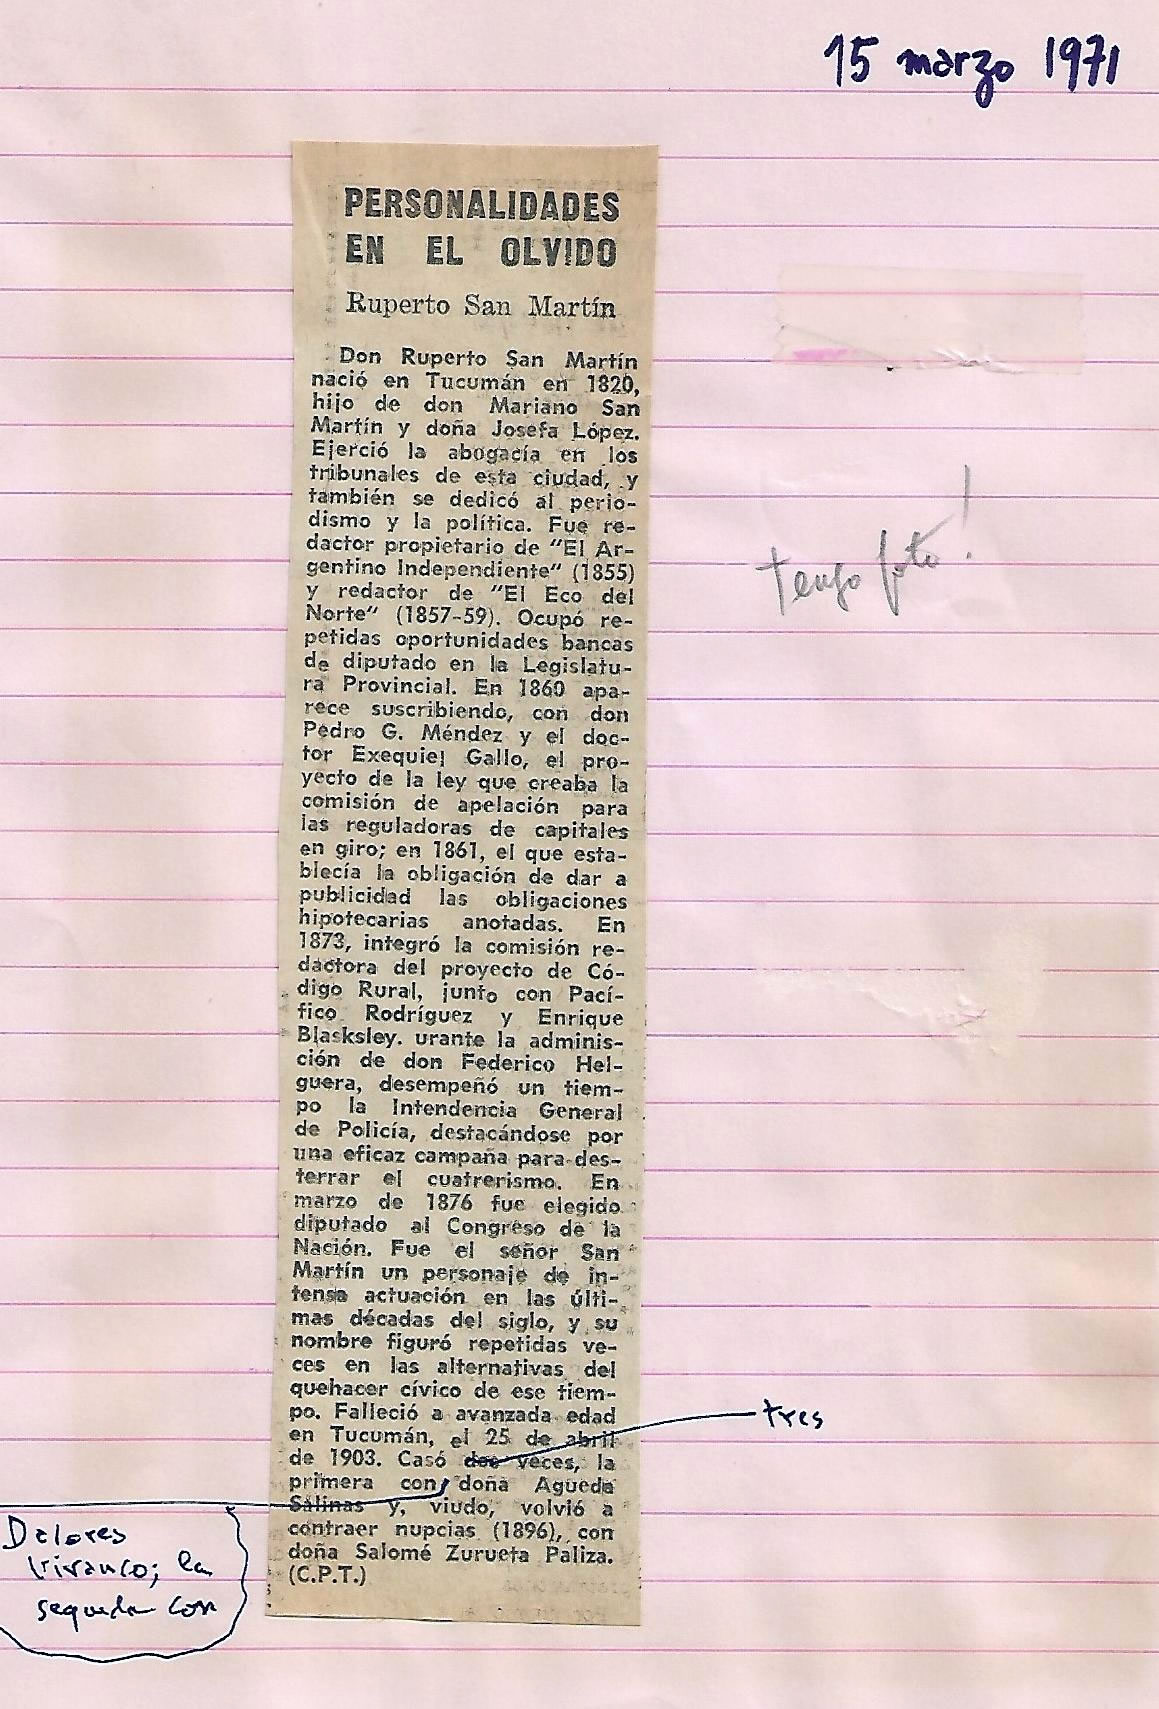 15 marzo 1971
PERSONALIDADES
EN EL OLVIDO
Ruperto San Martín
Don Ruperto San Martín
nació en Tucumán en 1820,
hijo de don Mariano San
Martín y doña Josefa López.
Ejerció la abogacía en los
tribunales de esta ciudad, y
también se dedicó al perio-
dismo y la política. Fue re-
dactor propietario de "El Ar-
gentino Independiente" (1855)
y redactor de "El Eco del
Norte" (1857-59). Ocupó re-
petidas oportunidades bancas
de diputado en la Legislatu-
ra Provincial. En 1860 apa-
rece suscribiendo, con don
Pedro G. Méndez y el doc-
tor Exequiel Gallo, el pro-
yecto de la ley que creaba la
comisión de apelación para
las reguladoras de capitales
en giro; en 1861, el que esta-
blecía la obligación de dar a
publicidad las obligaciones
hipotecarias anotadas. En
1873, integró la comisión re-
dactora del proyecto de Có-
digo Rural, junto con Pací-
fico Rodríguez y Enrique
Blasksley. urante la adminis-
ción de don Federico Hel-
guera, desempeñó un tiem-
po la Intendencia General
de Policía, destacándose por
una eficaz campaña para des-
terrar el cuatrerismo. En
marzo de 1876 fue elegido
diputado al Congreso de la
Nación. Fue el señor San
Martín un personaje de in-
tensa actuación en las últi-
mas décadas del siglo, y su
nombre figuró repetidas ve-
ces en las alternativas del
quehacer cívico de ese tiem-
po. Falleció a avanzada edad
en Tucumán, el 25 de abril
de 1903. Casó dos veces, la
primera con doña Agueda
Salinas y, viudo, volvió a
contraer nupcias (1896), con
doña Salomé Zurueta Paliza.
(C.P.T.)
tengo foto!
tres
Dolores
Vivanco; la
segunda con